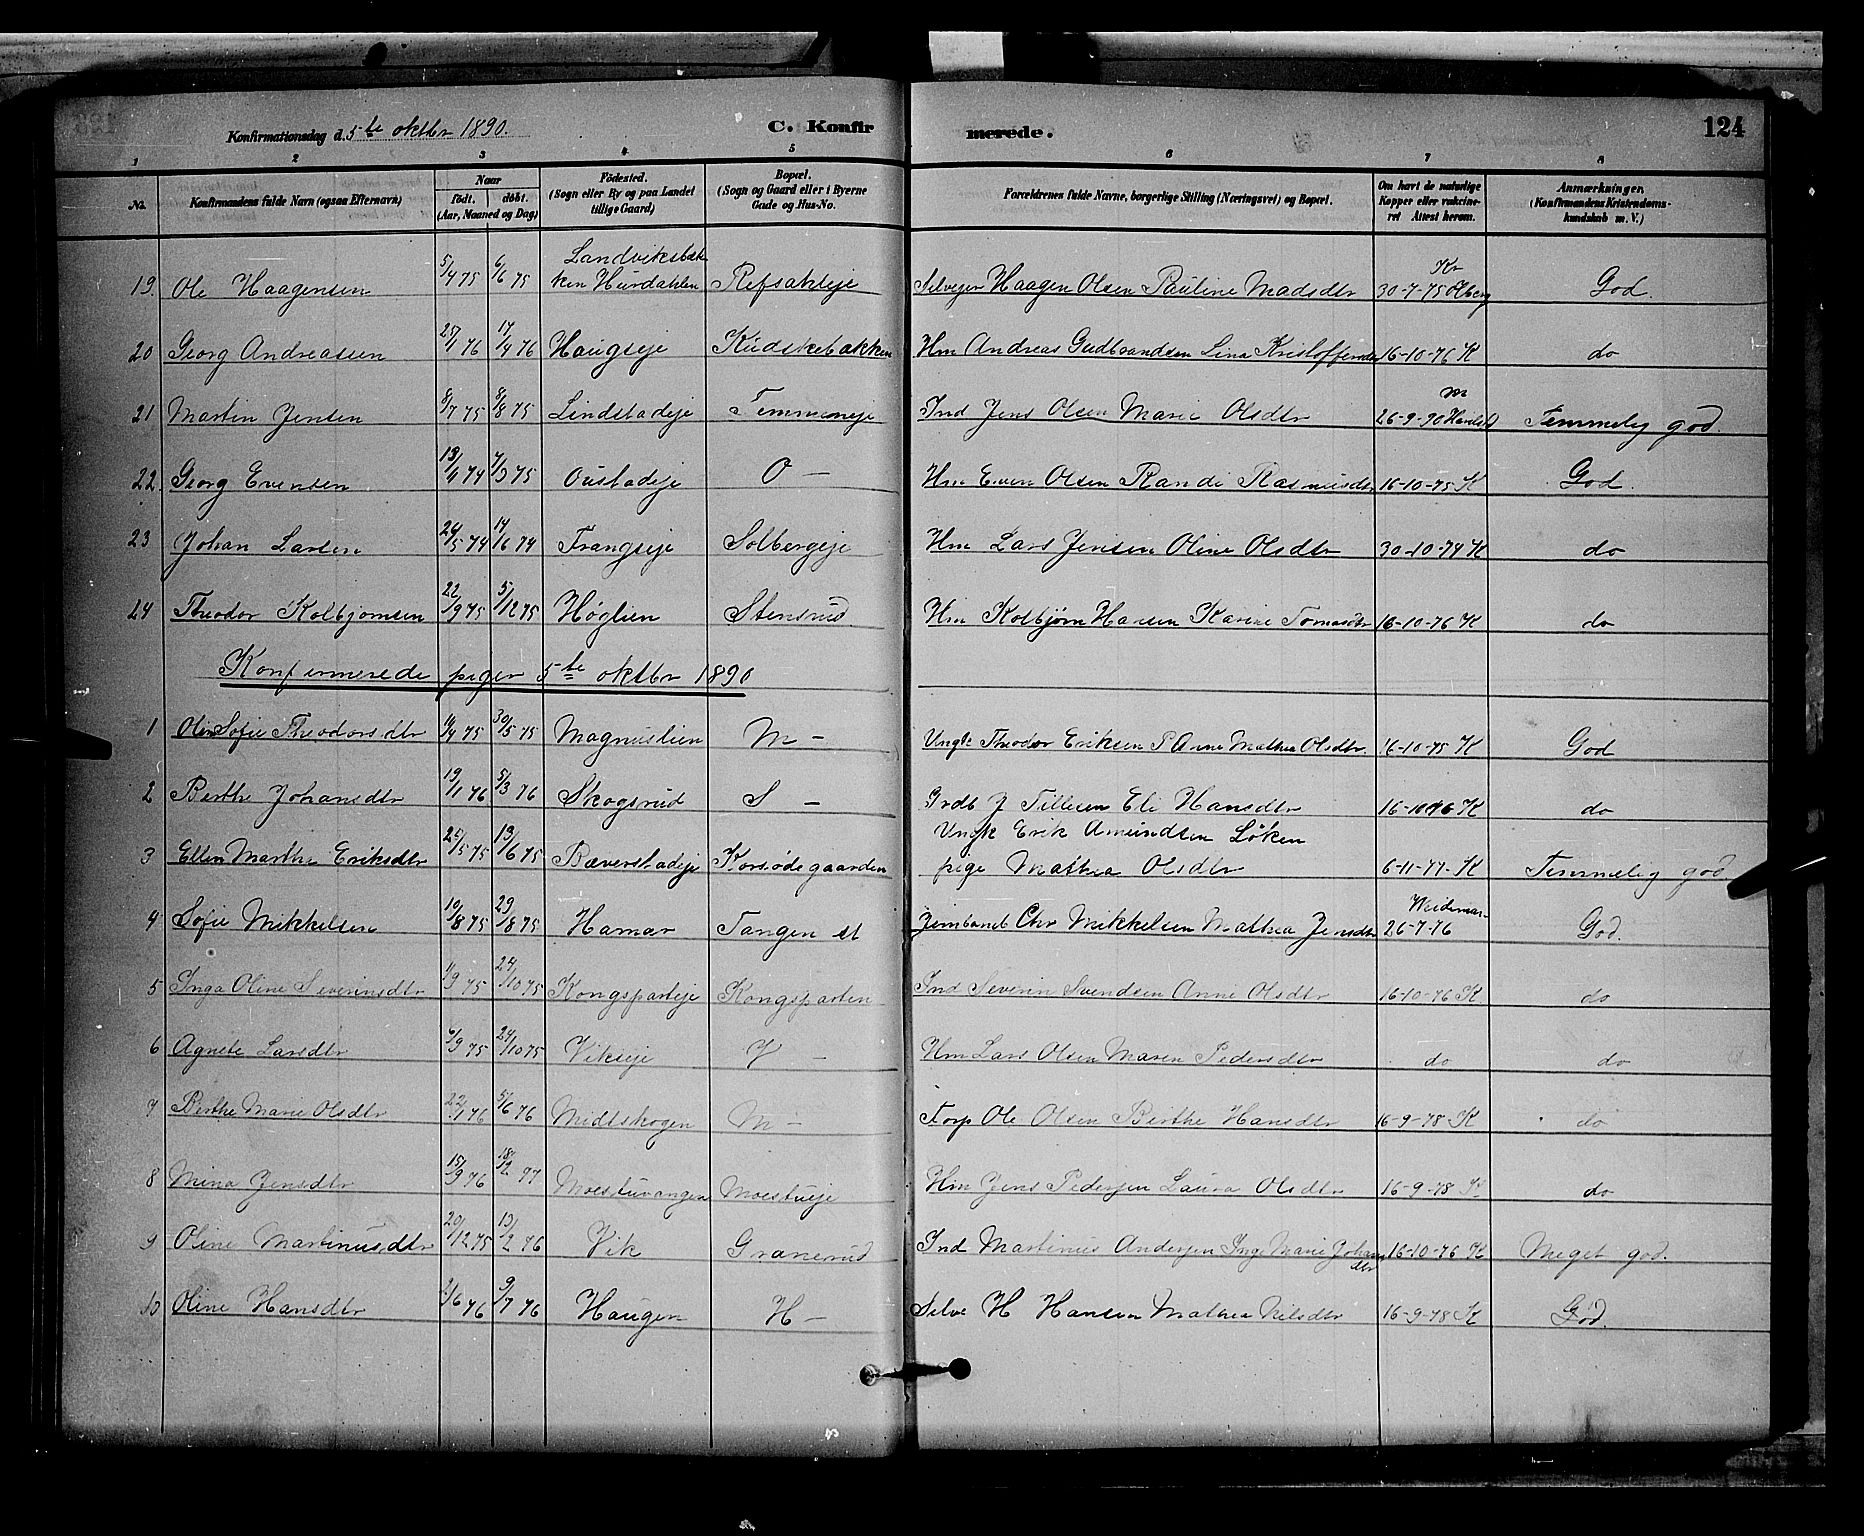 Konfirmationsdag d. 5te oktbr 1890. C. Konfirmerede. 124
1 2 3 4 5 6 7 8
№ Konfirmandens fulde Navn (ogsaa Efternavn) Naar født. døbt. (Aar, Maaned og Dag) Fødested. (Sogn eller By og paa Landet tillige Gaard) Bopæl. (Sogn og Gaard eller i Byerne Gade og Hus-No. Forældrenes fulde Navne, borgerlige Stilling (Næringsvei) og Bopæl. Om havt de naturlige Kopper eller vaccineret Attest herom. Anmærkninger. (Konfirmandens Kristendomskundskab m. V.)
19. Ole Haagensen 5/4 75 6/6 75 Landviksbakken Hurdahlen Refsakleje Selveger Haagen Olsen Pauline Madsdtr 30-7-75 Kr Olberg God.
20 Georg Andreassen 25/1 76 17/4 76 Haugseje Kudskebakken Hm Andreas Gudbrandsen Lina Kristoffersdtr 16-10-76 K do
21 Martin Jensen 8/7 75 8/8 75 Lindstadeje Temmeneje Ind Jens Olsen Marie Olsdtr 26-9-90 Temmelig god.
22. Georg Evensen 18/11 74 7/3 75 Oustadeje O — Hm Even Olsen Randi Rasmusdtr 16-10-75 K God.
23 Johan Larsen 24/5 74 14/6 74 Frangseje Solbergeje Hm Lars Jensen Oline Olsdtr 30-10-74 K do
24 Theodor Kolbjørnsen 22/9 75 5/12 75 Høglien Stensrud Hm Kolbjørn Hansen Karine Tomasdtr 16-10-76 K do
Konfirmerede piger 5te oktbr 1890
1 Oline Sofie Theodorsdtr 14/4 75 30/5 75 Magnuslien M — Ungk Theodor Eriksen P Anne Mathea Olsdtr. 16-10-75 K God
2 Berthe Johansdtr 19/1 76 5/3 76 Skogsrud S — Grdb J Tillesen Eli Hansdtr 16-10 76 K do
3 Ellen Marthe Eriksdtr 25/5 75 13/6 75 Bæverstadeje Korsødegaarden Ungk Erik Amundsen Løken
pige Mathea Olsdtr 6-11-77- K Temmelig god.
4 Sofie Mikkelsen 10/8 75 29/8 75 Hamar Tangen st Jernbanet Chr Mikkelsen Mathea Jensdtr 26-7-76 God.
5 Inga Oline Severinsdtr 1/9 75 24/10 75 Kongsparteje Kongsparten Ind Severin Svendsen Anne Olsdtr 16-10-76 K do
6 Agnete Larsdtr 7/9 75 24/10 75 Vikseje V — Hm Lars Olsen Maren Pedersdtr do do
7 Berthe Marie Olsdtr 22/1 76 5/6 76 Midtskogen M — Torp Ole Olsen Berthe Hansdtr 16-9-78 K do
8 Mina Jensdtr 15/9 76 18/2 77 Moestuvangen Moestueje Hm Jens Pedersen Laura Olsdtr 16-9-78 K do
9 Oline Martinusdtr 20/12 75 13/2 76 Vik Granerud Ind Martinus Andersen Inge Marie Johansdtr 16-10-76 K Meget god.
10 Oline Hansdtr 2/6 76 9/7 76 Haugen H — Selve H Hansen Mathea Nilsdtr 16-9-78 K God.